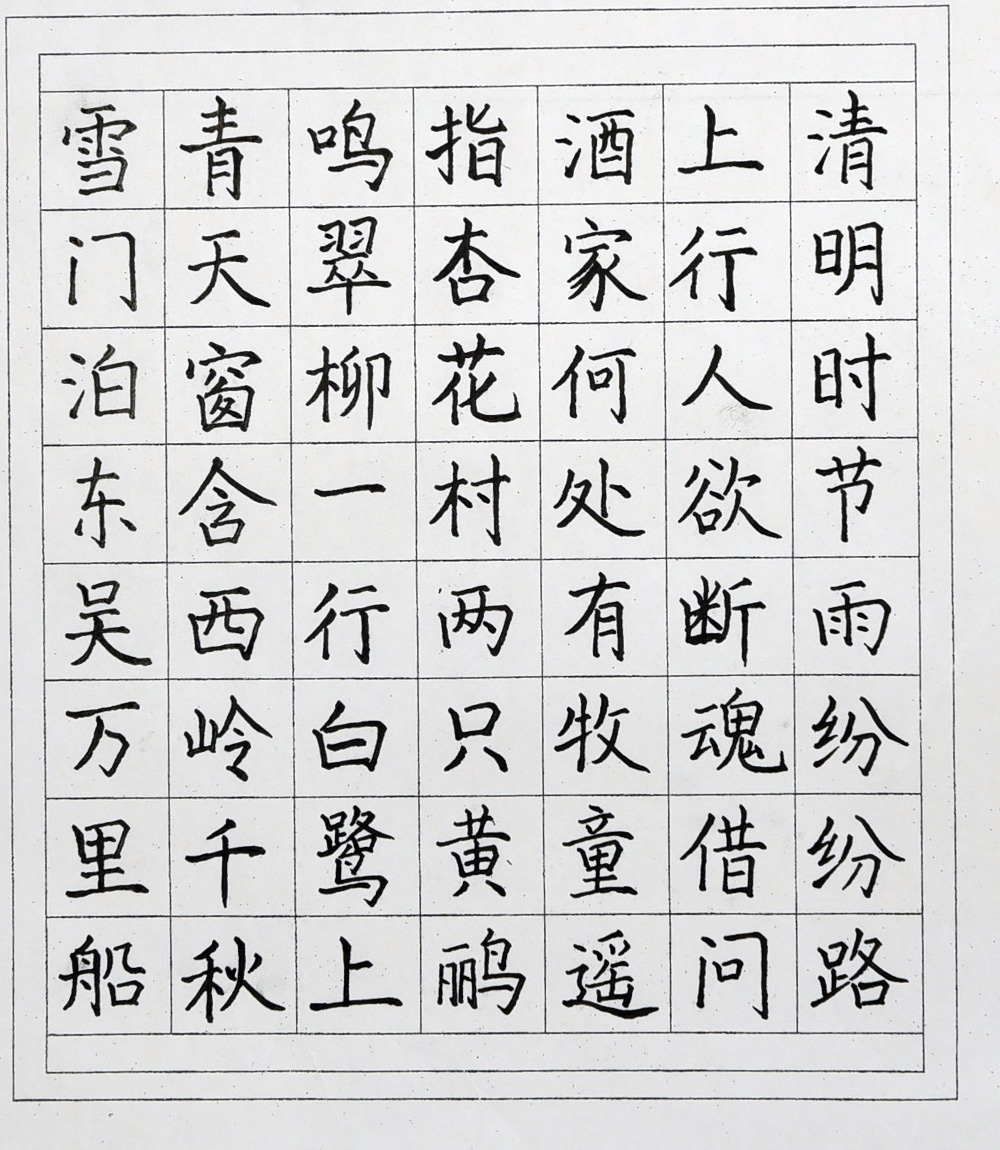 清明时节雨纷纷路
上行人欲断魂借问
酒家何处有牧童遥
指杏花村两只黄鹂
鸣翠柳一行白鹭上
青天窗含西岭千秋
雪门泊东吴万里船